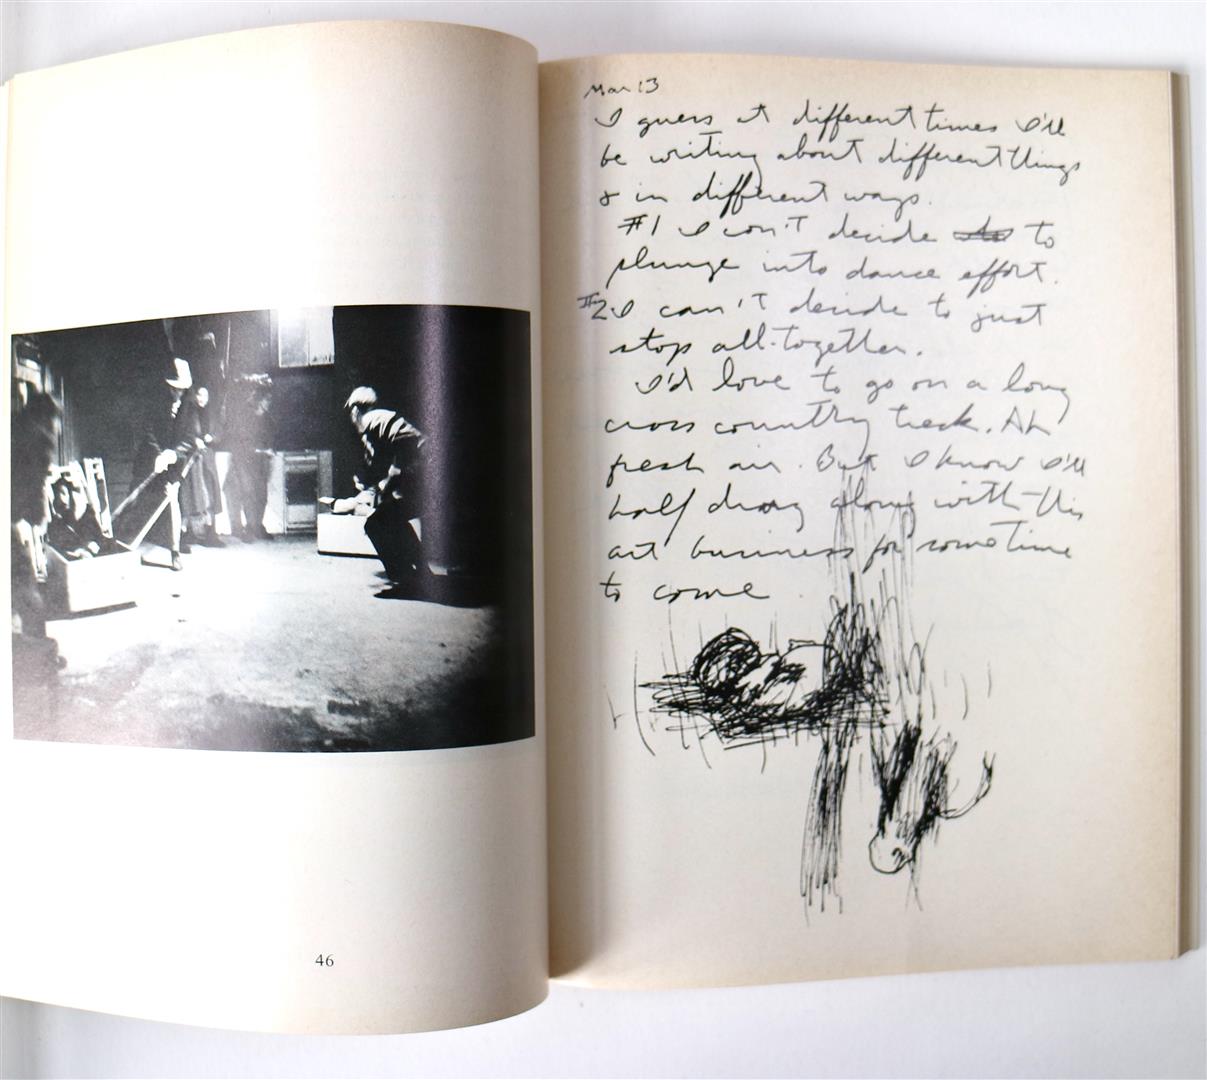 46
Mar 13
I guess at different times I'll
be writing about different things
& in different ways.
#1 I can't decide to
plunge into dance effort.
#2 I can't decide to just
stop all-together.
I'd love to go on a long
cross country treck. Ah
fresh air. But I know I'll
half drag along with this
art business for sometime
to come